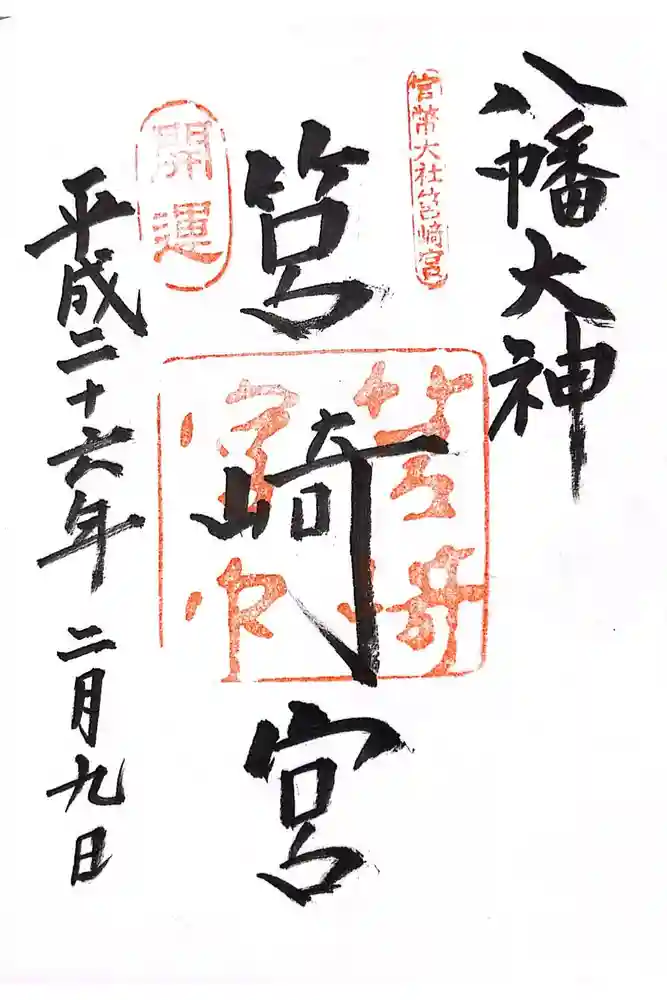 八幡大神
官幣大社筥崎宮
筥崎宮
筥崎
宮印
開運
平成二十六年 二月九日